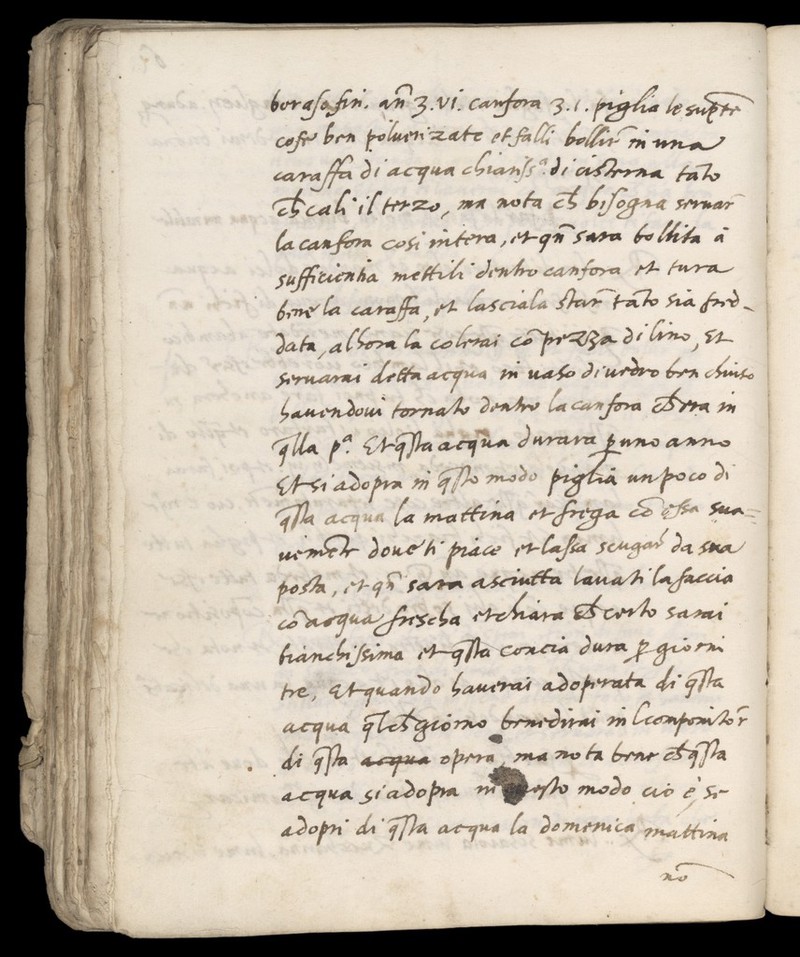 boraso fin. añ ʒ. vi. canfora ʒ. i. piglia le sup.te
cose ben poluerizate et falli bollir̃ in una
caraffa di acqua chiariss.a di cisterna tãto
ch̃ cali il terzo, ma nota ch̃ bisogna seruar̃
la canfora cosi intera, et qñ sara bollita à
sufficientia mettili dentro canfora et tura
bene la caraffa, et lasciala star̃ tãto sia fred-
data, alhora la colerai cõ pezza di lino, Et
seruarai detta acqua in uaso di uedro ben chiuso
hauendoui tornato dentro la canfora ch̃ era in
q̃lla p.a Et q̃sta acqua durara p̱ uno anno
Et si adopra in q̃sto modo piglia un poco di
q̃sta acqua la mattina et frega cõ essa sua=
uement̃e doue ti piace et lassa sciugar̃ da sua
posta, et qñ sara asciutta lauati la faccia
cõ acqua frescha et chiara ch̃ certo sarai
bianchissima et q̃sta concia dura p̱ giorni
tre, Et quando hauerai adoperata di q̃sta
acqua q̃lch̃ giorno benedirai il componitor̃
di q̃sta acqua opera, ma nota bene ch̃ q̃sta
acqua si adopra in questo modo cio è, se
adopri di q̃sta acqua la domenica mattina
nõ